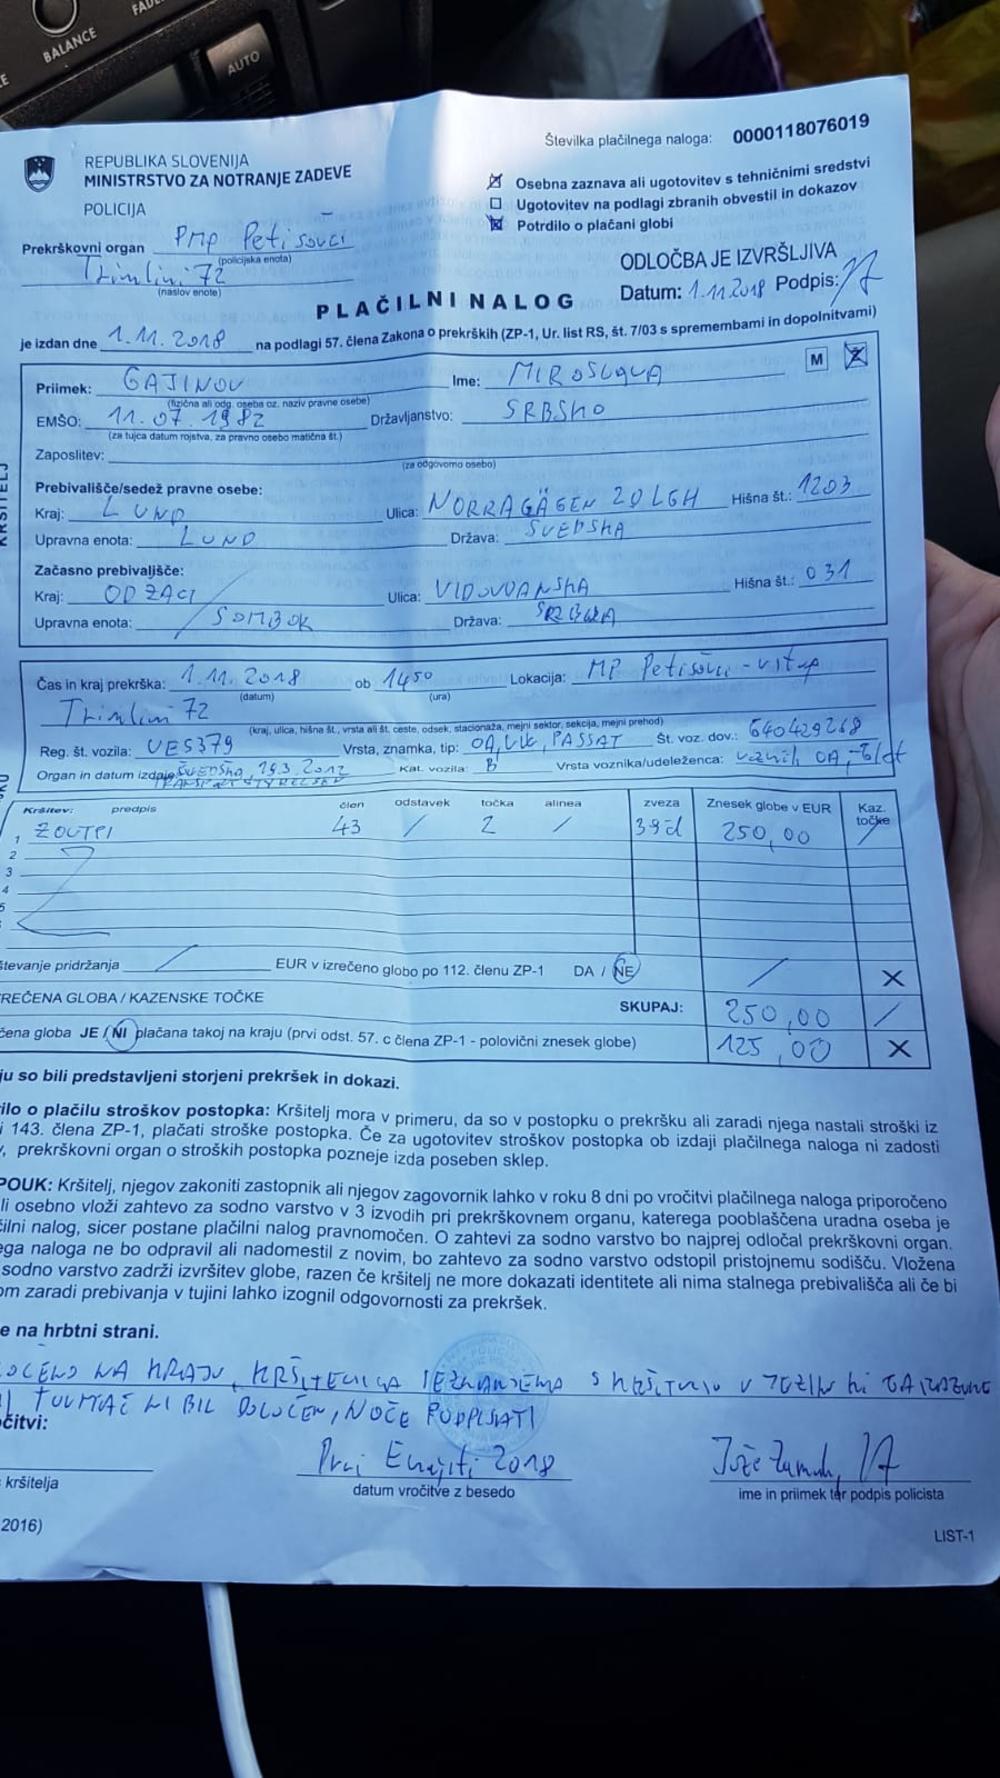 BALANCE
FAD
AUTO
Številka plačilnega naloga: 0000118076019
REPUBLIKA SLOVENIJA
MINISTRSTVO ZA NOTRANJE ZADEVE
POLICIJA
Osebna zaznava ali ugotovitev s tehničnimi sredstvi
Ugotovitev na podlagi zbranih obvestil in dokazov
Potrdilo o plačani globi
Prekrškovni organ PMP Petišovci
(policijska enota)
Trimlini 72
(naslov enote)
ODLOČBA JE IZVRŠLJIVA
Datum: 1.11.2018 Podpis:
PLAČILNI NALOG
je izdan dne 1.11.2018 na podlagi 57. člena Zakona o prekrških (ZP-1, Ur. list RS, št. 7/03 s spremembami in dopolnitvami)
M Ž
Priimek: GAJINOV Ime: MIROSLAVA
(fizična ali odg. oseba oz. naziv pravne osebe)
EMŠO: 11.07.1982 Državljanstvo: SRBSKO
(za tujca datum rojstva, za pravno osebo matična št.)
Zaposlitev:
(za odgovorno osebo)
Prebivališče/sedež pravne osebe:
Kraj: LUND Ulica: NORRAGÄGEN 20 LGH Hišna št.: 1203
Upravna enota: LUND Država: ŠVEDSKA
Začasno prebivališče:
Kraj: ODZACI Ulica: VIDOVDANSKA Hišna št.: 031
Upravna enota: SOMBOR Država: SRBIJA
Čas in kraj prekrška: 1.11.2018 ob 1450 Lokacija: MP Petišovci - vstop
(datum) (ura)
Trimlini 72
(kraj, ulica, hišna št., vrsta ali št. ceste, odsek, stacionaža, mejni sektor, sekcija, mejni prehod)
Reg. št. vozila: UES379 Vrsta, znamka, tip: OA, VW, PASSAT Št. voz. dov.: 640429268
Organ in datum izdaje: ŠVEDSKA, 19.3.2012 Kat. vozila: B Vrsta voznika/udeleženca: voznik OA,
TRANSPORTSTYRELSEN
Kršitev: predpis člen odstavek točka alinea zveza Znesek globe v EUR Kaz. točke
1 ZOUTPI 43 / 2 / 39d 250,00 /
2
3
4
5
števanje pridržanja / EUR v izrečeno globo po 112. členu ZP-1 DA / NE / X
REČENA GLOBA / KAZENSKE TOČKE SKUPAJ: 250,00 /
čena globa JE / NI plačana takoj na kraju (prvi odst. 57. c člena ZP-1 - polovični znesek globe) 125,00 X
ju so bili predstavljeni storjeni prekršek in dokazi.
ilo o plačilu stroškov postopka: Kršitelj mora v primeru, da so v postopku o prekršku ali zaradi njega nastali stroški iz
i 143. člena ZP-1, plačati stroške postopka. Če za ugotovitev stroškov postopka ob izdaji plačilnega naloga ni zadosti
, prekrškovni organ o stroških postopka pozneje izda poseben sklep.
POUK: Kršitelj, njegov zakoniti zastopnik ali njegov zagovornik lahko v roku 8 dni po vročitvi plačilnega naloga priporočeno
li osebno vloži zahtevo za sodno varstvo v 3 izvodih pri prekrškovnem organu, katerega pooblaščena uradna oseba je
čilni nalog, sicer postane plačilni nalog pravnomočen. O zahtevi za sodno varstvo bo najprej odločal prekrškovni organ.
ega naloga ne bo odpravil ali nadomestil z novim, bo zahtevo za sodno varstvo odstopil pristojnemu sodišču. Vložena
sodno varstvo zadrži izvršitev globe, razen če kršitelj ne more dokazati identitete ali nima stalnega prebivališča ali če bi
om zaradi prebivanja v tujini lahko izognil odgovornosti za prekršek.
e na hrbtni strani.
NA KRAJU, KRŠITELJICA SEZNANJENA S KRŠITVIJO V JEZIKU KI GA RAZUME
TOLMAČ NI BIL DOLOČEN, NOČE PODPISATI
čitvi:
Prvi Enajsti 2018 Jože
kršitelja datum vročitve z besedo ime in priimek ter podpis policista
2016) LIST-1